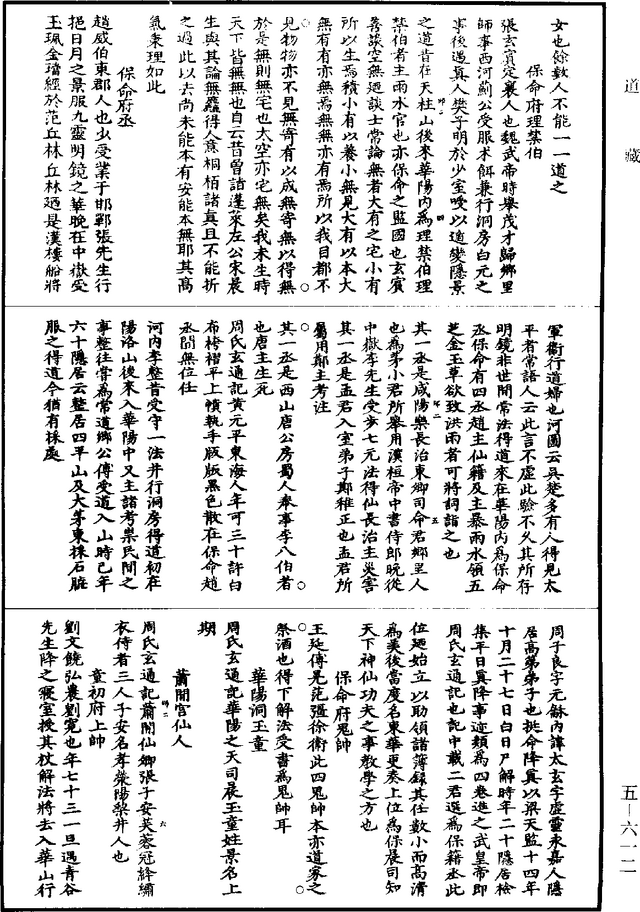 道藏
女也餘數人不能一一道之
保命府理禁伯
張玄賓定襄人也魏武帝時舉茂才歸鄉里
師事西河薊公受服朮餌兼行洞房白元之
事後遇真人樊子明於少室授以遁變隱景
之道昔在天柱山後來華陽內為理禁伯理
禁伯者主雨水官也亦保命之監國也玄賓
善談空無廼談士常論無者大有之宅小有
所以生焉積小有以養小無見大有以本大
無有有亦無焉無無亦有焉所以我目都不
見物物亦不見無寄有以成無寄無以得無
於是無則無宅也太空亦宅無矣我未生時
天下皆無無也自云昔曾詣蓬萊左公宋晨
生與其論無麤得人意桐栢諸真且不能折
之過此以去尚未能本有安能本無耶其高
氣秉理如此
保命府丞
趙威伯東郡人也少受業于邯鄲張先生行
挹日月之景服九靈明鏡之華晚在中嶽受
玉珮金璫經於范丘林丘林廼是漢樓船將
軍衛行道婦也河圖云吳楚多有人得見太
平者常語人云此言不虛此驗不久其所存
明鏡非世間常法得道來在華陽內為保命
丞保命有四丞趙主仙籍及主暴雨水領五
芝金玉草欲致洪雨者可將詞詣之也
其一丞是咸陽樂長治東鄉司命君鄉里人
也為茅小君所舉用漢桓帝中書侍郎晚從
中嶽李先生受步七元法得仙長治主災害
其一丞是孟君入室弟子鄭稚正也孟君所
屬用鄭主考注
其一丞是西山唐公房蜀人奉事李八伯者
也唐主生死
周氏玄通記黃元平東海人年可三十許白
布袴褶平上幘執手版版黑色散在保命趙
丞間無位任
河內李整昔受守一法并行洞房得道初在
陽洛山後來入華陽中又主諸考祟民間之
事整往嘗為常道鄉公傅受道入山時已年
六十隱居云整居四平山及大茅東採石脂
服之得道今猶有採處
周子良字元龢內諱太玄字虛靈永嘉人隱
居高弟弟子也挑命降真以梁天監十四年
十月二十七日白日尸解時年二十隱居檢
集平日真降事迹類為四卷進之武皇帝即
周氏玄通記也記中載二君選為保籍丞此
位廼始立以助領諸簿錄其任數小而高清
為美後當度名東華更奏上位為保晨司知
天下神仙功夫之事教學之方也
保命府鬼帥
王延傅晃范彊徐衛此四鬼帥本亦道家之
祭酒也得下解法受書為鬼帥耳
華陽洞玉童
周氏玄通記華陽之天司晨玉童姓景名上
期
蕭閒宮仙人
周氏玄通記蕭閒仙卿張子安芙蓉冠絳繡
衣侍者三人子安名孝滎陽梨井人也
童初府上帥
劉文饒弘農劉寬也年七十三一旦遇青谷
先生降之寢室授其杖解法將去入華山行
五—六一二